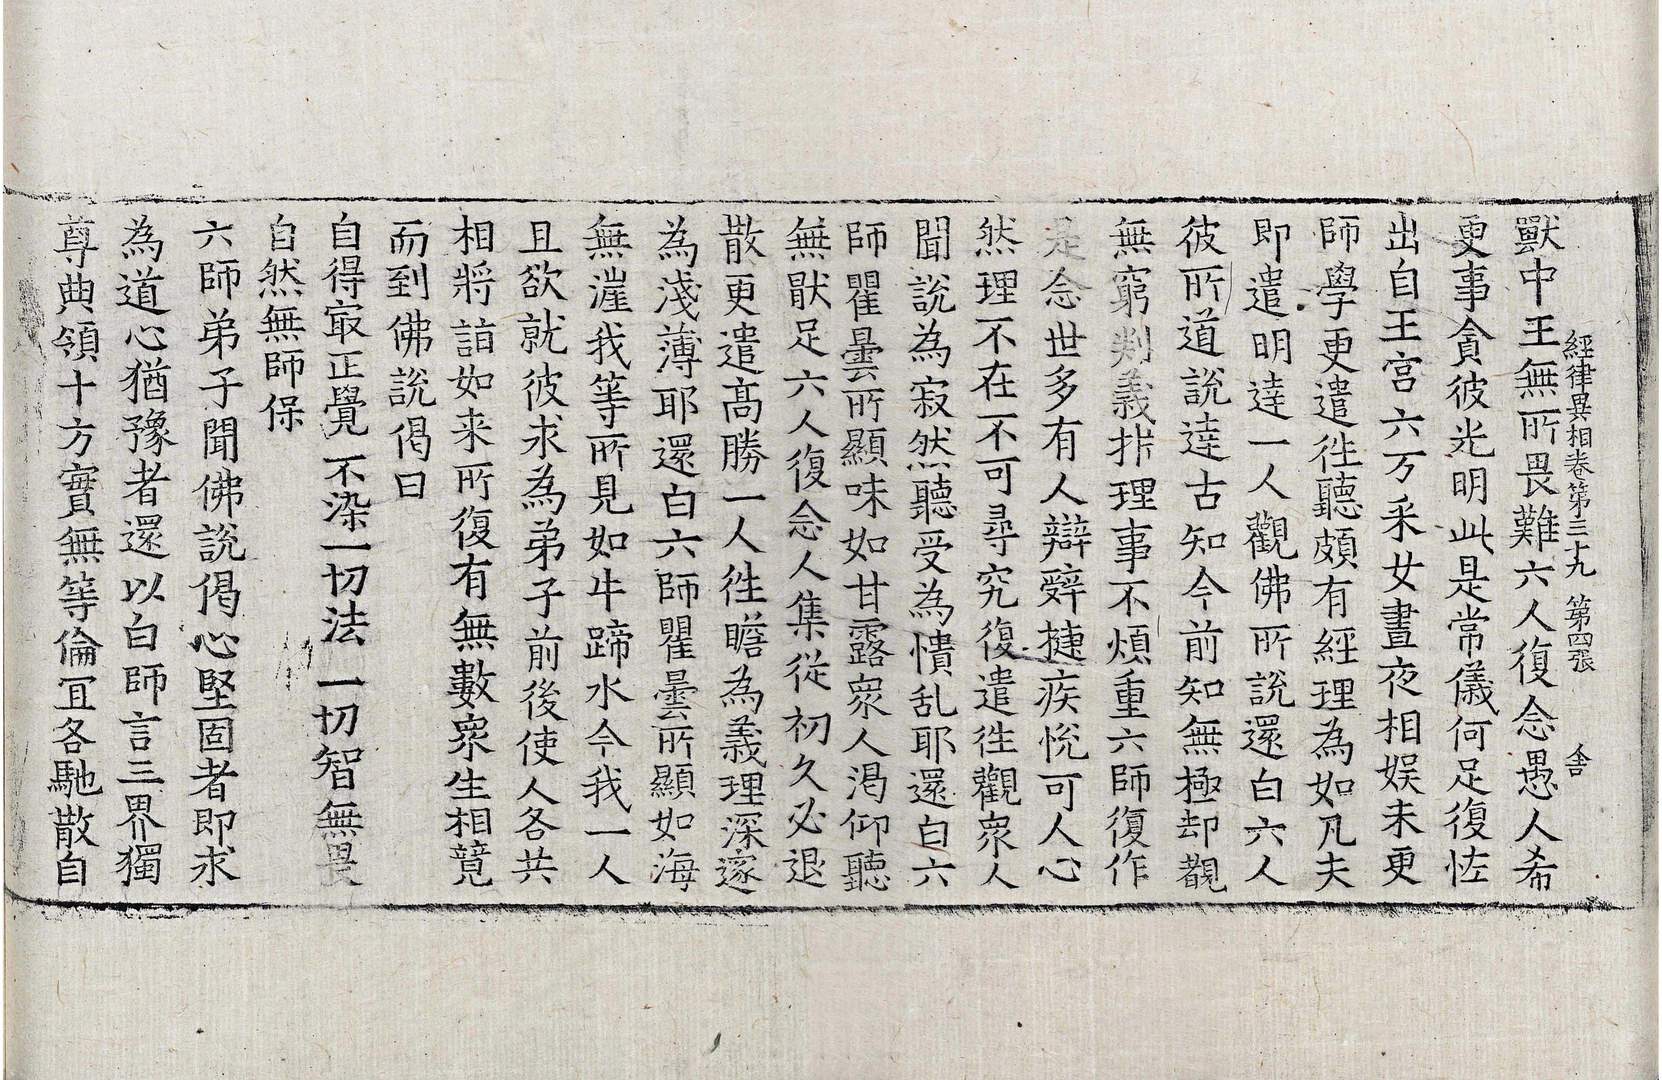 經律異相卷第三十九 第四張 舍
獸中王無所畏難六人復念愚人希
更事貪彼光明此是常儀何足復恠
出自王宮六万采女晝夜相娛未更
師學更遣往聽頗有經理為如凡夫
即遣明達一人觀佛所說還白六人
彼所道說達古知今前知無極却覩
無窮判義析理事不煩重六師復作
是念世多有人辯辭揵疾悅可人心
然理不在不可尋究復遣往觀眾人
聞說為寂然聽受為憒乱耶還白六
師瞿曇所顯味如甘露眾人渴仰聽
無猒足六人復念人集從初久必退
散更遣高勝一人往瞻為義理深邃
為淺薄耶還白六師瞿曇所顯如海
無漄我等所見如牛蹄水今我一人
且欲就彼求為弟子前後使人各共
相將詣如来所復有無數眾生相競
而到佛說偈曰
自得寂正覺 不染一切法 一切智無畏
自然無師保
六師弟子聞佛說偈心堅固者即求
為道心猶豫者還以白師言三界獨
尊典領十方實無等倫冝各馳散自